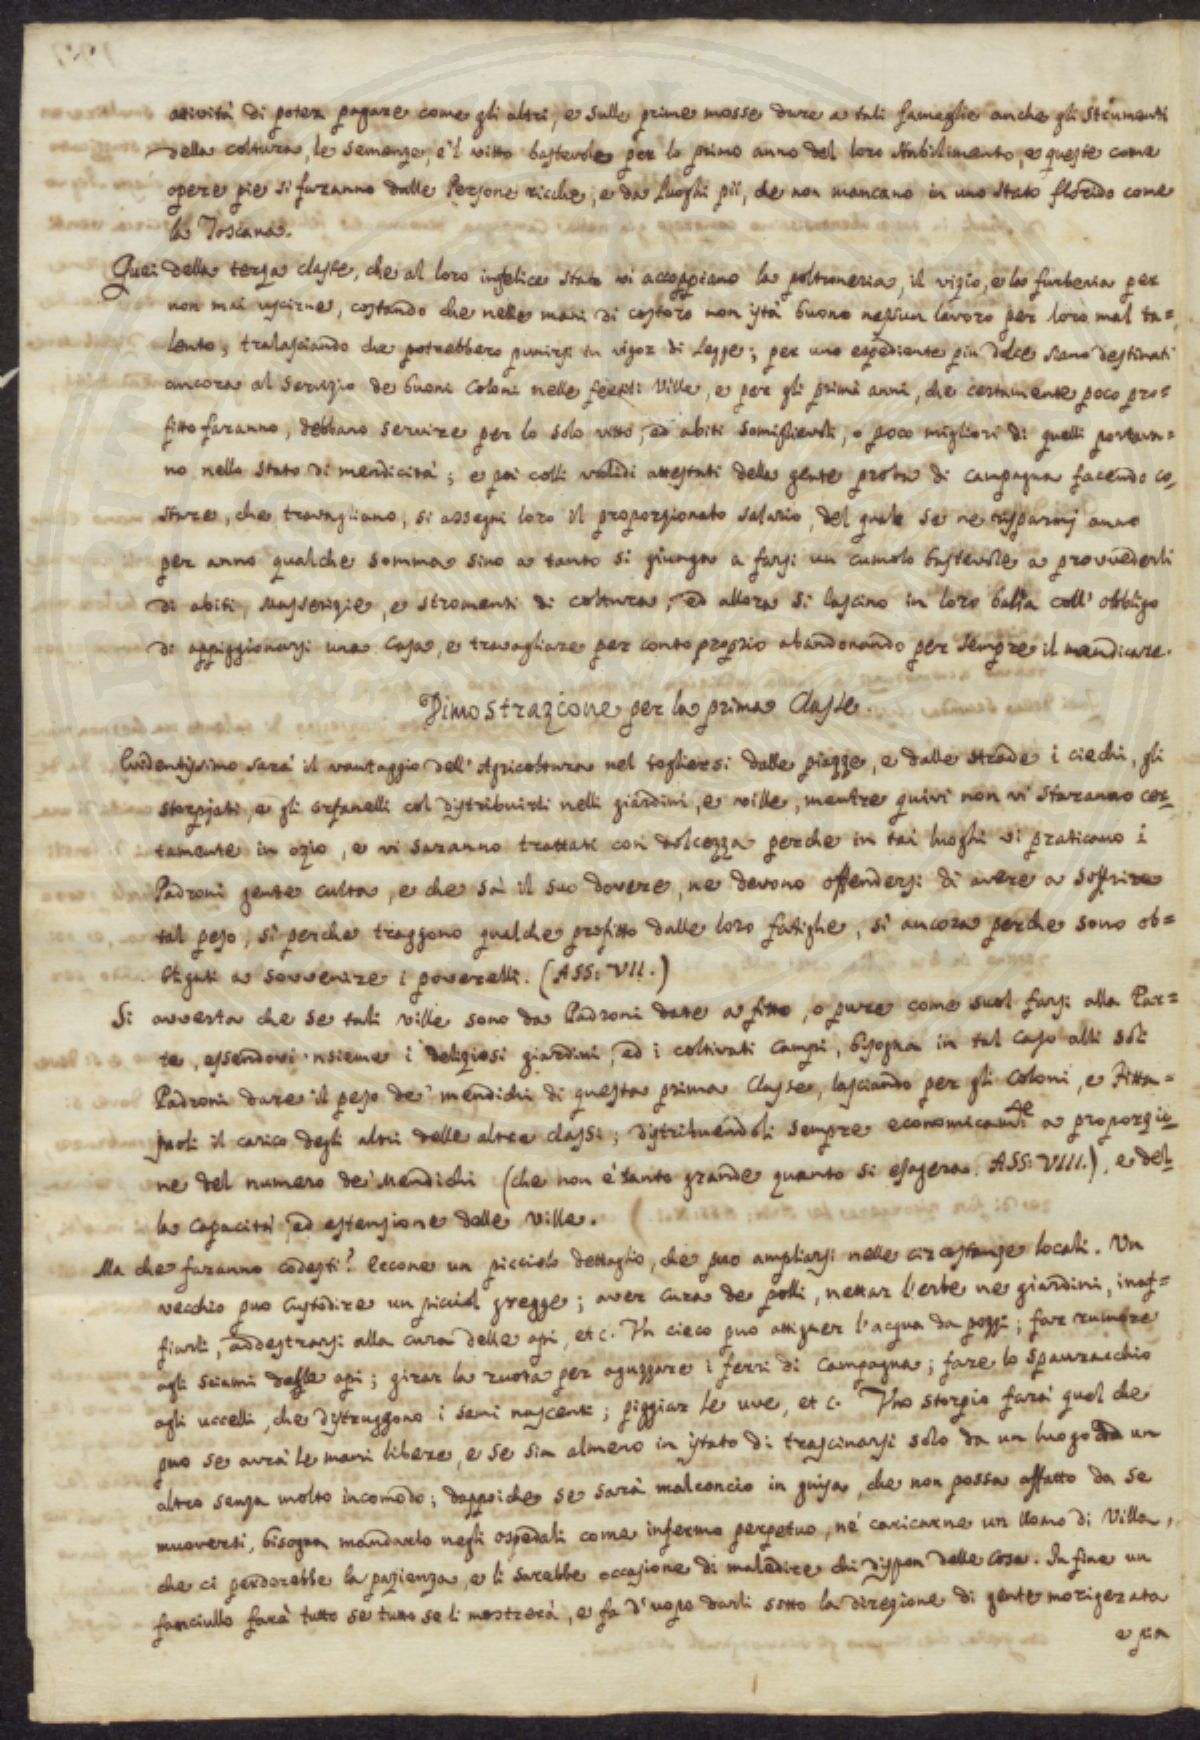 attività di poter pagare come gli altri, e sulle prime mosse dare a tali fameglie anche gli strumenti
della coltura, le semenze, e 'l vitto bastevole per lo primo anno del loro stabilimento, e queste come
opere pie si faranno dalle Persone ricche, e da Luoghi pii, che non mancano in uno stato florido come
la Toscana.
Quei della terza classe, che al loro infelice stato vi accoppiano la poltroneria, il vizio, e la furberia per
non mai uscirne, costando che nelle mani di costoro non istà buono nessun lavoro per loro mal ta=
lento, tralasciando che potrebbero punirsi in vigor di Legge; per uno espediente piu dolce siano destinati
ancora al servizio de buoni Coloni nelle Ville, e per gli primi anni, che certamente poco pro=
fitto faranno, debbano servire per lo solo vitto, ed abiti somiglievoli, o poco migliori di quelli portava=
no nello stato di mendicità; e poi colli validi attestati della gente proba di campagna facendo co=
stare, che travagliano, si assegni loro il proporzionato salario, del quale se ne risparmj anno
per anno qualche somma sino a tanto si giunga a farsi un cumolo bastevole a provvederli
di abiti, Masserizie, e stromenti di coltura; ed allora si lascino in loro balìa coll' obbligo
di appiggionarsi una Casa, e travagliare per conto proprio abandonando per sempre il mendicare.
Dimostrazione per la prima Classe.
Evidentissimo sarà il vantaggio dell' Agricoltura nel togliersi dalle piazze, e dalle strade i ciechi, gli
storpjati, e gli orfanelli col distribuirli nelli giardini, e ville, mentre quivi non vi staranno cer=
tamente in ozio, e vi saranno trattati con dolcezza perche in tai luoghi vi praticano i
Padroni gente culta, e che sà il suo dovere, ne devono offendersi di avere a soffrire
tal peso, sì perche traggono qualche profitto dalle loro fatighe, sì ancora perche sono ob=
bligati a sovvenire i poverelli. (ASS: VII.)
Si avverta che se tali ville sono da Padroni date a fitto, o pure come suol farsi alla Par=
te, essendovi insieme i deliziosi giardini, ed i coltivati Campi, bisogna in tal caso alli soli
Padroni dare il peso de' mendichi di questa prima Classe, lasciando per gli Coloni, e Fitta=
juoli il carico degli altri delle altre classi; distribuendoli sempre economicam:te a proporzio=
ne del numero de' Mendichi (che non è tanto grande quanto si esagera. ASS: VIII.), e del=
la capacità, ed estensione delle Ville.
Ma che faranno codesti? Eccone un picciolo dettaglio, che puo ampliarsi nelle circostanze locali. Un
vecchio puo custodire un picciol gregge; aver cura de polli, nettar l'erbe ne giardini, inaf=
fiarli, addestrarsi alla cura delle api, et c. Un cieco puo attigner l'acqua da pozzi; far rumore
agli sciami delle api; girar la ruota per aguzzare i ferri di Campagna; fare lo spauracchio
agli uccelli, che distruggono i semi nascenti; piggiar le uve, et c. Uno storpio farà quel che
puo se avrà le mani libere, e se sia almeno in istato di trascinarsi solo da un luogo ad un
altro senza molto incomodo; dappoiche se sarà malconcio in guisa, che non possa affatto da se
muoversi, bisogna mandarlo negli ospedali come infermo perpetuo, nè caricarne un Uomo di Villa,
che ci perderebbe la pazienza, e li sarebbe occasione di maledire chi dispon delle cose. In fine un
fanciullo farà tutto se tutto se li mostrerà, e fa d'uopo darli sotto la direzione di gente morigerata
e pia